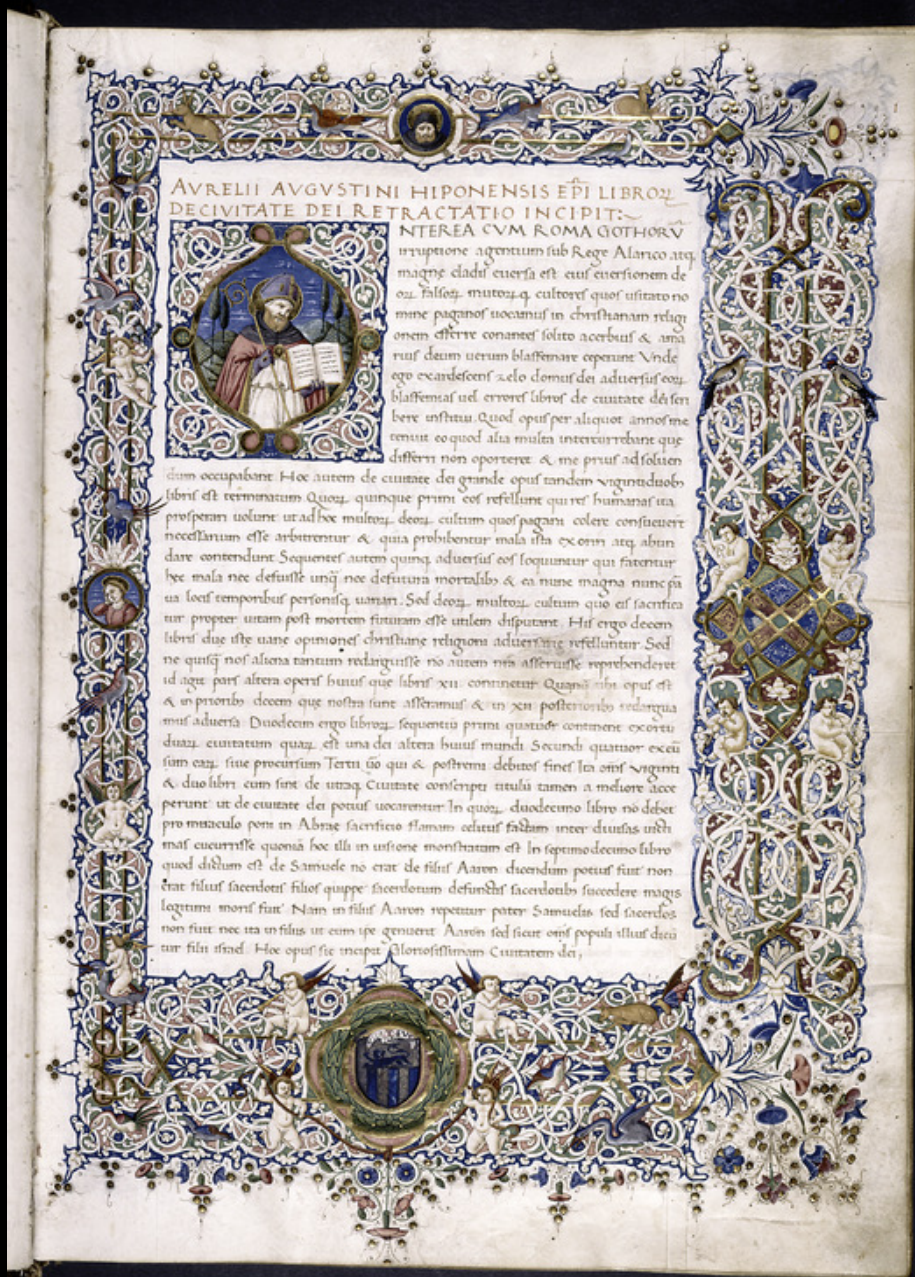 AVRELII AVGVSTINI HIPONENSIS EP̄I LIBROꝜ
DE CIVITATE DEI RETRACTATIO INCIPIT:~
NTEREA CVM ROMA GOTHORV̄
irruptione agentium sub Rege Alarico atq;
magne cladis eversa est eius eversionem de
oꝝ falsoꝝ multoꝝq cultores quos usitato no
mine paganos vocamus in christianam religi
onem efferre conantes solito acerbius & ama
rius deum verum blasfemare ceperunt Vnde
ego exardescens zelo domus dei adversus eoꝝ
blasfemias vel errores libros de civitate dei scri
bere institui. Quod opus per aliquot annos me
tenuit eo quod alia multa intercurrebant que
differri non oporteret & me prius ad solven
dum occupabant. Hoc autem de civitate dei grande opus tandem viginti duob;
libris est terminatum Quoꝝ quinque primi eos refellunt qui res humanas ita
prosperari volunt ut ad hoc multoꝝ deoꝝ cultum quos pagani colere consuevert
necessarium esse arbitrentur & quia prohibentur mala ista exoriri atq; abun
dare contendunt Sequentes autem quinq; adversus eos loquuntur qui fatentur
hec mala nec defuisse unq̄ nec defutura mortalib; & ea nunc magna nunc pa
va locis temporibus personisq; variari. Sed deoꝝ multoꝝ cultum quo eis sacrifica
tur propter vitam post mortem futuram esse utilem disputant. His ergo decem
libris due iste vane opiniones christiane religioni adversarie refelluntur Sed
ne quisq̄ nos aliena tantum redarguisse nō autem nr̄a asseruisse reprehenderet
id agit pars altera operis huius que libris XII continetur Quanq̄ ubi opus est
& in priorib; decem que nostra sunt asseramus & in XII posteriorib; redargua
mus adversa. Duodecim ergo libroꝝ sequentiū primi quatuor continent exortū
duaꝝ civitatum quaꝝ est una dei altera huius mundi Secundi quatuor excu
sum eaꝝ sive procursum Tertii v̄o qui & postremi debitos fines Ita om̄s viginti
& duo libri cum sint de utraq; Civitate conscripti titulū tamen a meliore acce
perunt ut de civitate dei potius vocarentur In quoꝝ duodecimo libro no debet
pro miraculo poni in Abrae sacrificio flamam celitus factam inter divisas victi
mas cucurrisse quoniā hoc illi in visione monstratum est In septimodecimo libro
quod dictum est de Samuele no erat de filiis Aaron dicendum potius fuit non
erat filius sacerdotis filios quippe sacerdotum defunctis sacerdotib; succedere magis
legitimi moris fuit. Nam in filiis Aaron repetitur pater Samuelis sed sacerdos
non fuit nec ita in filiis ut eum ipe genuerit Aaron sed sicut om̄s populi illius dicū
tur filii israel. Hoc opus sic incipit Gloriosissimam Civitatem dei,